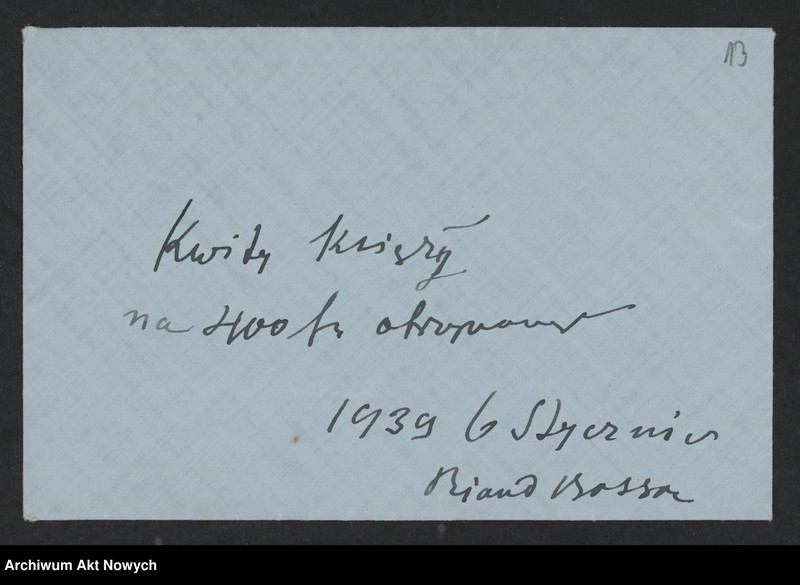 13
Kwity Księży
na 400 fr otrzymane
1939 6 Stycznia
Riond Bosson
Archiwum Akt Nowych